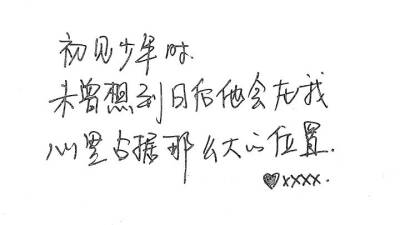 初见少年时.
未曾想到日后他会在我
心里占据那么大的位置.
♥xxxx.